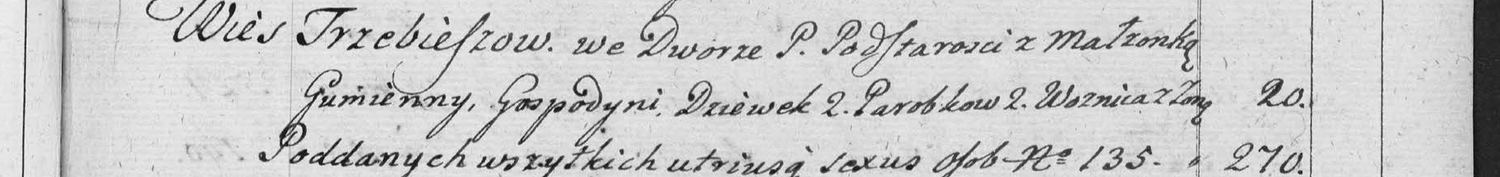 Wieś Trzebieſzow. we Dworze P. Podſtarosci z Małzonką
Gumienny, Gospodyni, Dziewek 2. Parobkow 2. Woznica z Zoną 20.
Poddanych wszyſtkich utriusq̣ sexus oſob No 135. 270.